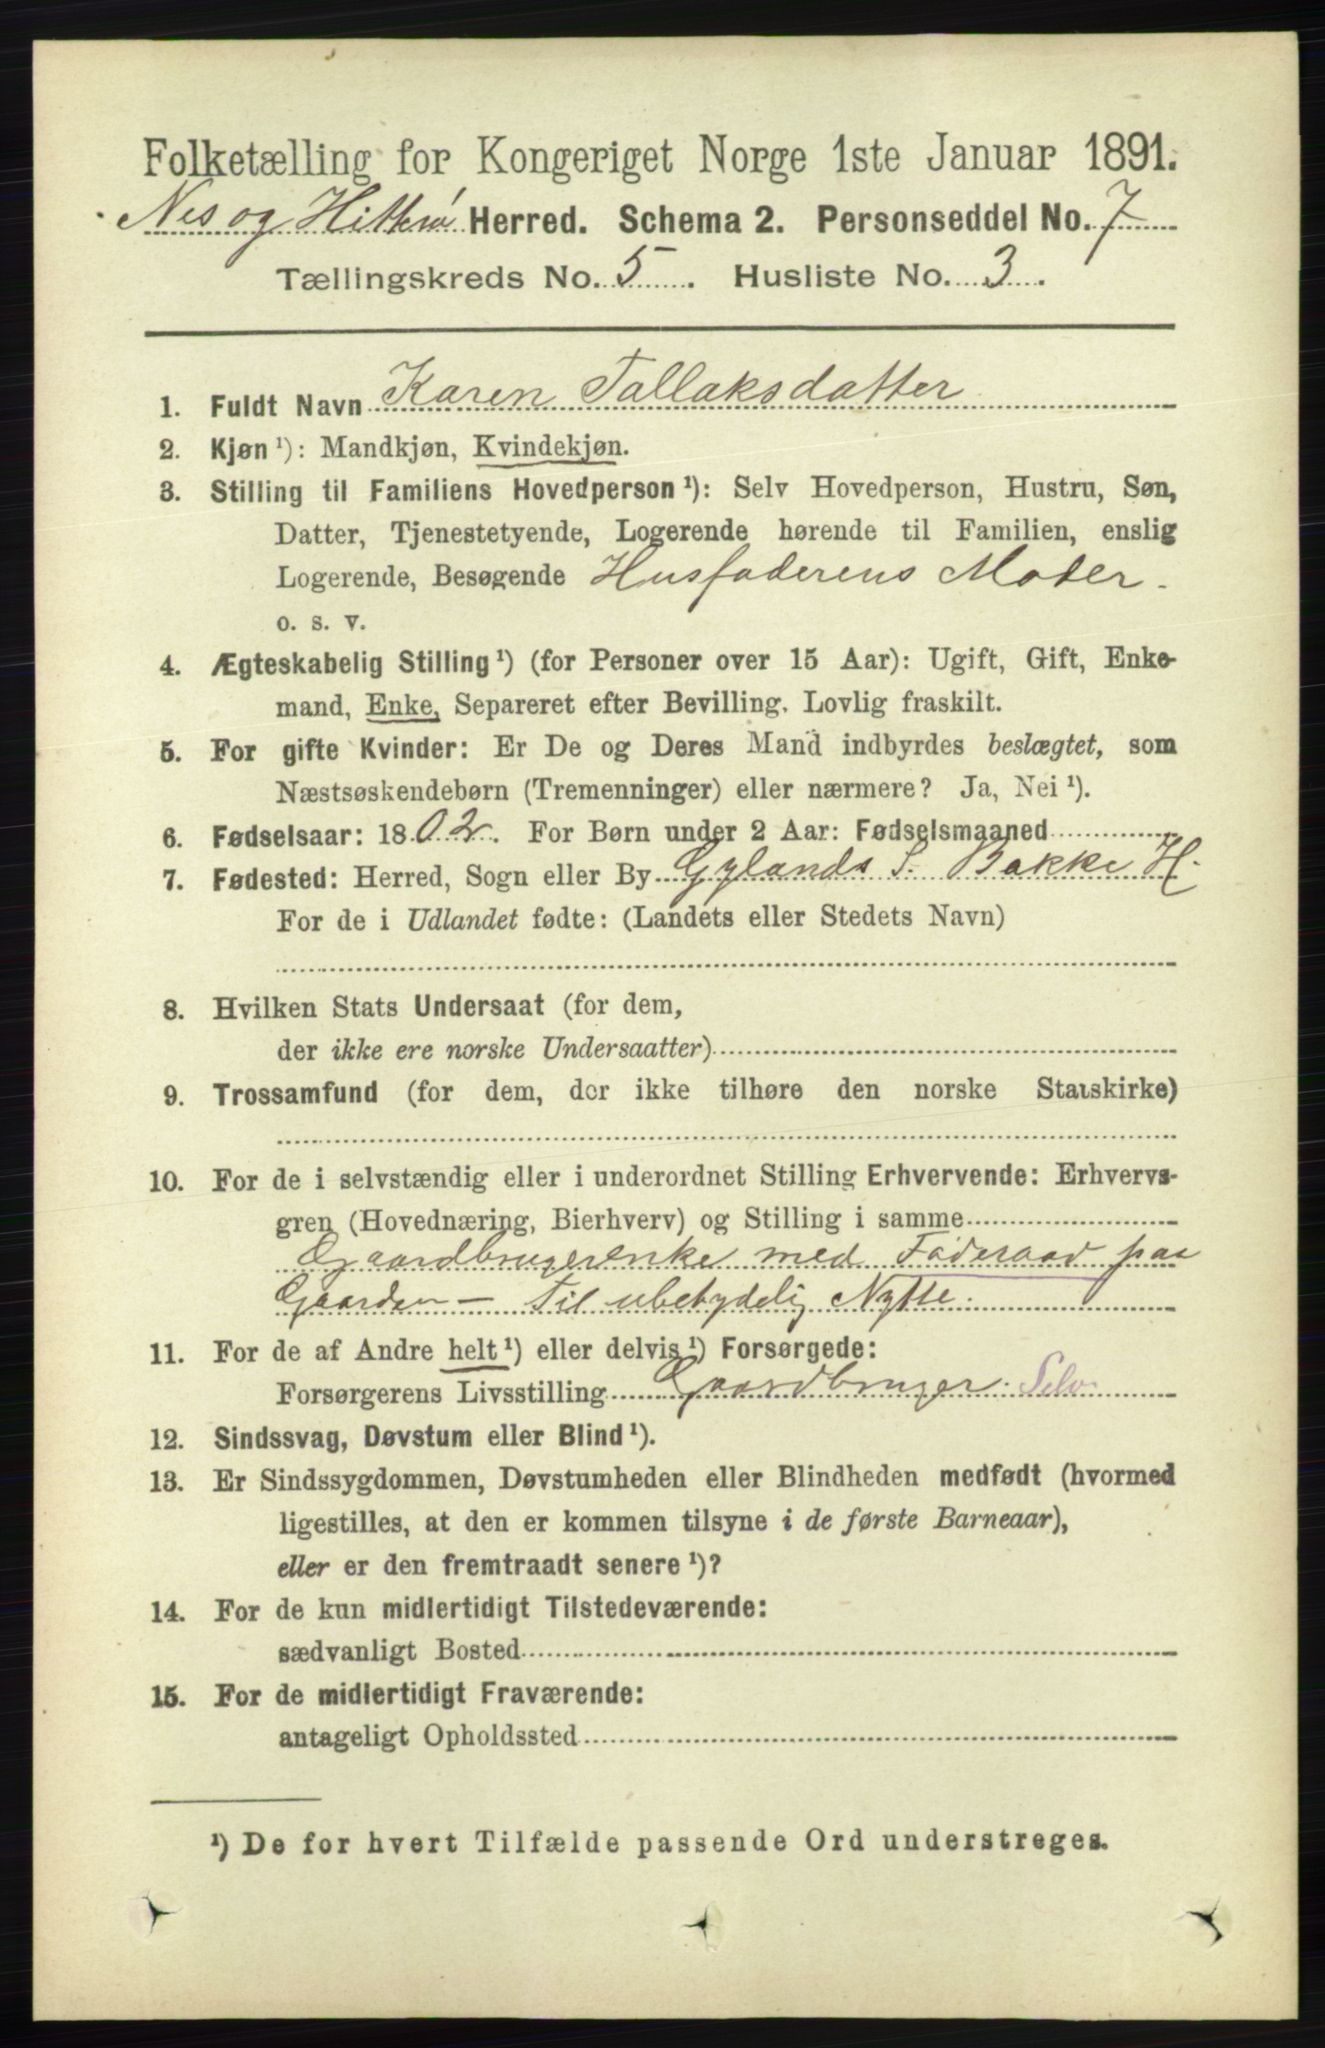 Folketælling for Kongeriget Norge 1ste Januar 1891.
Nes og Hitterø Herred. Schema 2. Personseddel No. 7
Tællingskreds No. 5. Husliste No. 3.
1. Fuldt Navn Karen Tallaksdatter
2. Kjøn ¹): Mandkjøn, Kvindekjøn.
3. Stilling til Familiens Hovedperson ¹): Selv Hovedperson, Hustru, Søn,
Datter, Tjenestetyende, Logerende hørende til Familien, enslig
Logerende, Besøgende Husfaderens Moder.
o. s. v.
4. Ægteskabelig Stilling ¹) (for Personer over 15 Aar): Ugift, Gift, Enke-
mand, Enke, Separeret efter Bevilling. Lovlig fraskilt.
5. For gifte Kvinder: Er De og Deres Mand indbyrdes beslægtet, som
Næstsøskendebørn (Tremenninger) eller nærmere? Ja, Nei ¹).
6. Fødselsaar: 1802. For Børn under 2 Aar: Fødselsmaaned
7. Fødested: Herred, Sogn eller By Gylands S. Bakke H.
For de i Udlandet fødte: (Landets eller Stedets Navn)
8. Hvilken Stats Undersaat (for dem,
der ikke ere norske Undersaatter)
9. Trossamfund (for dem, der ikke tilhøre den norske Statskirke)
10. For de i selvstændig eller i underordnet Stilling Erhvervende: Erhvervs-
gren (Hovednæring, Bierhverv) og Stilling i samme
Gaardbrugerenke med Føderaad paa
Gaarden – Til ubetydelig Nytte.
11. For de af Andre helt ¹) eller delvis ¹) Forsørgede:
Forsørgerens Livsstilling Gaardbruger. Selv.
12. Sindssvag, Døvstum eller Blind ¹).
13. Er Sindssygdommen, Døvstumheden eller Blindheden medfødt (hvormed
ligestilles, at den er kommen tilsyne i de første Barneaar),
eller er den fremtraadt senere ¹)?
14. For de kun midlertidigt Tilstedeværende:
sædvanligt Bosted
15. For de midlertidigt Fraværende:
antageligt Opholdssted
¹) De for hvert Tilfælde passende Ord understreges.